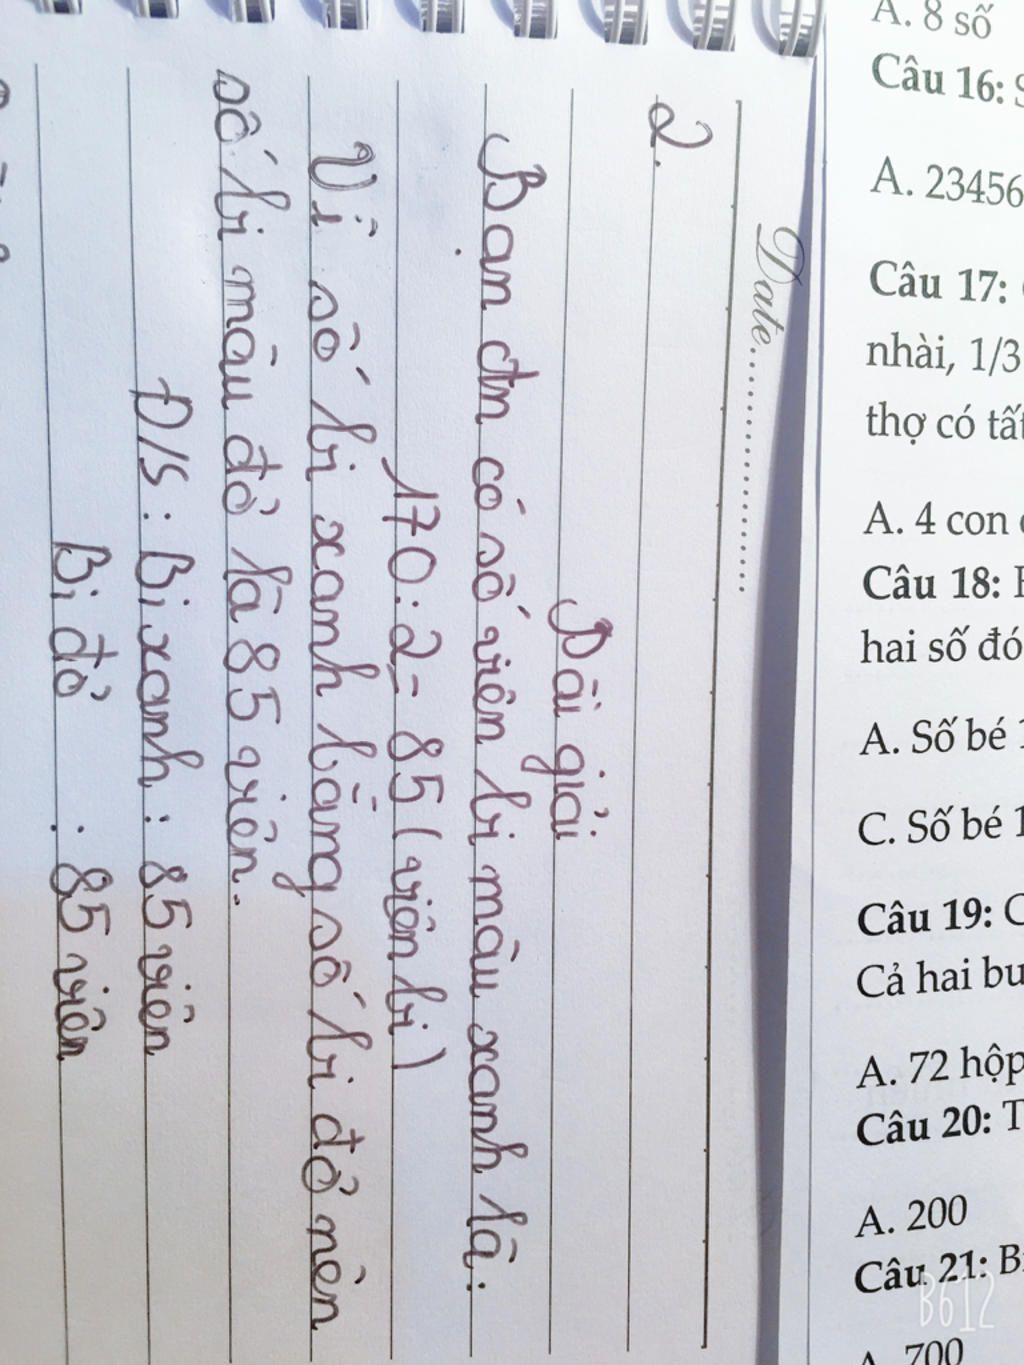 Date
2.
Bài giải
Bạn đn có số viên bi màu xanh là:
170:2=85(viên bi)
Vì số bi xanh bằng số bi đỏ nên
số bi màu đỏ là 85 viên.
Đ/S: Bi xanh: 85 viên
Bi đỏ : 85 viên
A. 8 số
Câu 16: S
A. 23456
Câu 17:
nhài, 1/3
thợ có tất
A. 4 con
Câu 18:
hai số đó
A. Số bé 1
C. Số bé 1
Câu 19: C
Cả hai bu
A. 72 hộp
Câu 20: T
A. 200
Câu 21: B
A. 700
B612